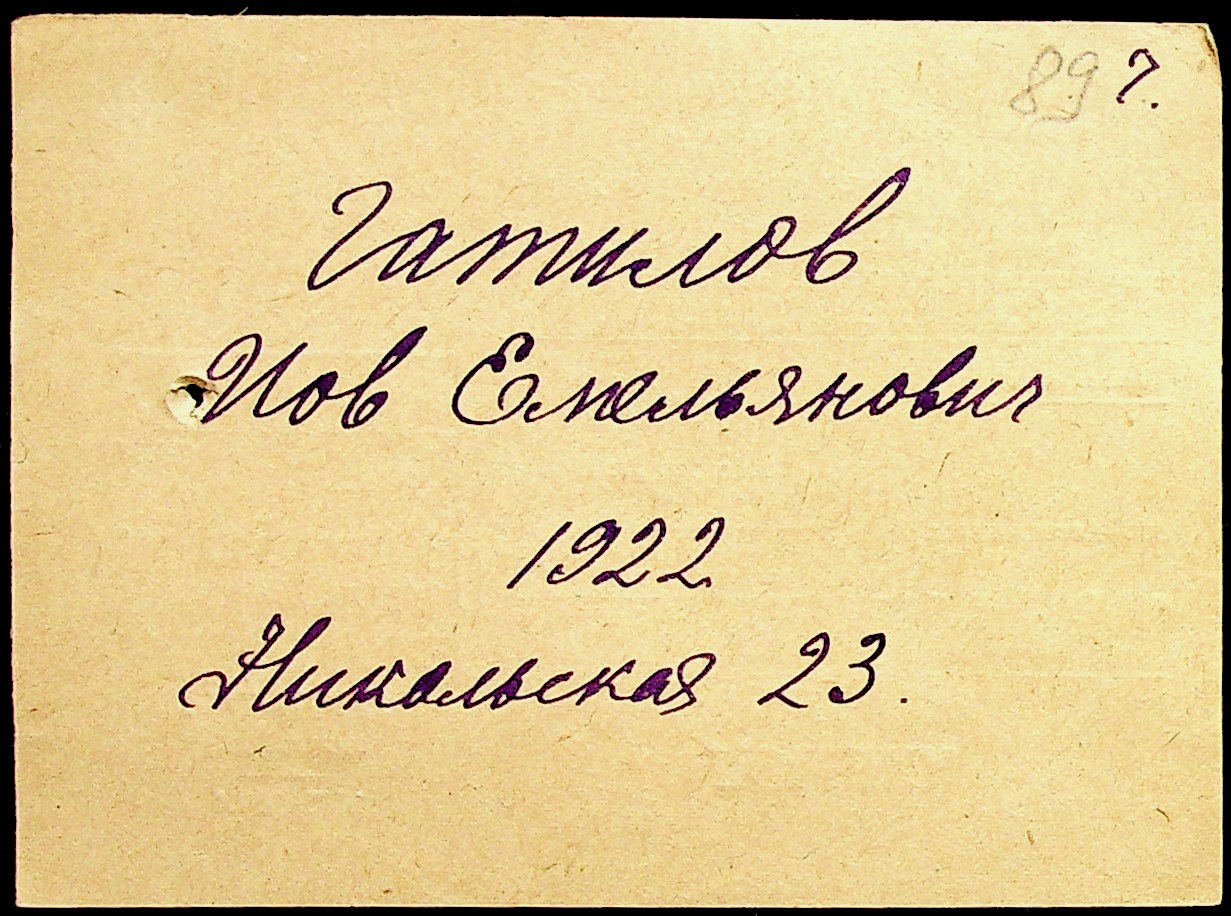 89 7.
Гатилов
Иов Емельянович
1922
Никольская 23.